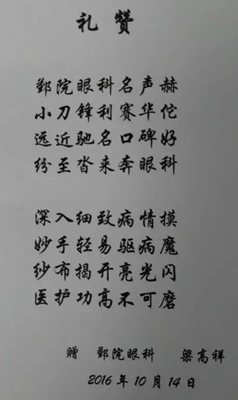 礼赞
鄞院眼科名声赫
小刀锋利赛华佗
远近驰名口碑好
纷至沓来奔眼科
深入细致病情摸
妙手轻易驱病魔
纱布揭开亮光闪
医护功高不可磨
赠 鄞院眼科 梁高祥
2016年10月14日